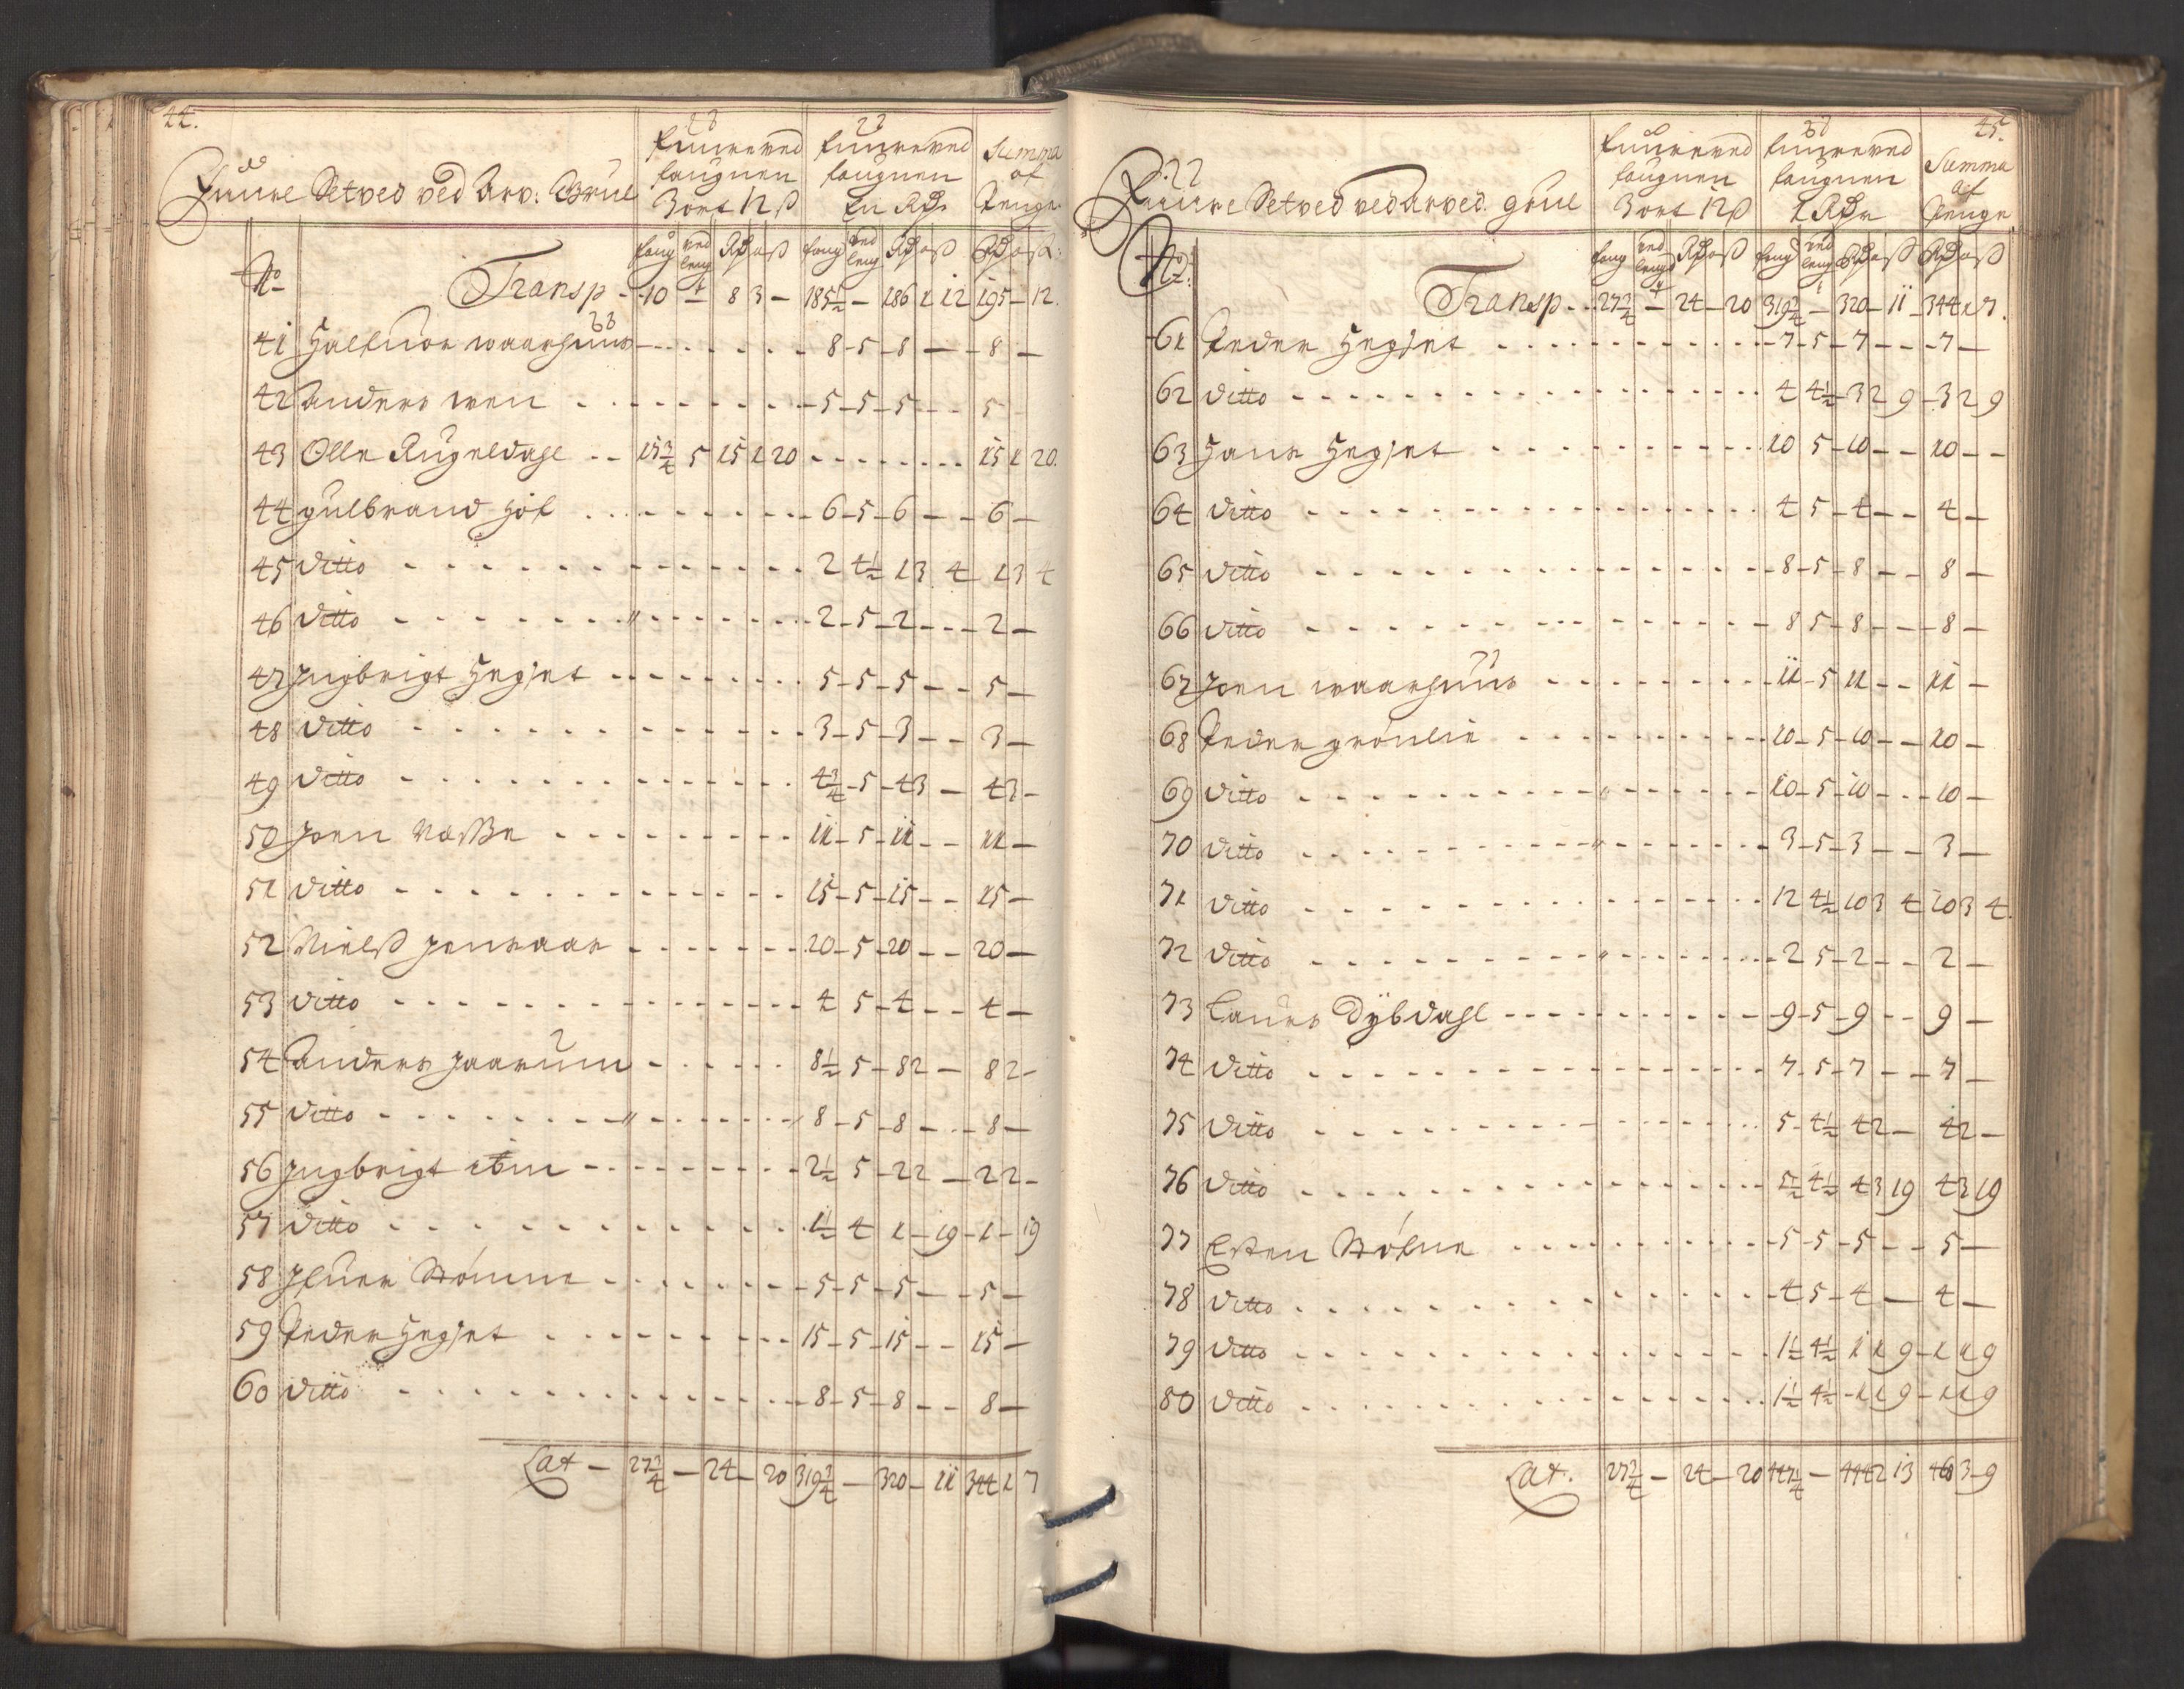 44.
Fuure Setved ved Arv: Grue
fuureved faugnen 3 ort 12 ß
fuureved faugnen En Rdr
Summa af Penge
No faug ved leng Rdr ort ß faug ved leng Rdr ort ß Rdr ort ß
Transp - 10 - 8 3 - 185½ - 186 1 12 195 - 12.
41 Halfuor waarhuus - 8 - 5 - 8 - 8 -
42 Anders wen - 5 - 5 - 5 - 5
43 Olle Rugeldahl - 15¾ 5 15 1 20 - 15 1 20.
44 gulbrand Hof - 6 - 5 - 6 - 6 -
45 ditto - 2 4½ 1 3 4 1 3 4
46 ditto - 2 - 5 - 2 - 2 -
47 Jngbrigt Hegset - 5 - 5 - 5 - 5 -
48 ditto - 3 - 5 - 3 - 3 -
49 ditto - 4¾ - 5 - 4 3 - 4 3 -
50 Joen - 11 - 5 - 11 - 11 -
51 ditto - 15 - 5 - 15 - 15 -
52 Nielß - 20 - 5 - 20 - 20 -
53 ditto - 4 5 - 4 - 4 -
54 Anders - 8½ 5 - 8 2 - 8 2 -
55 ditto - 8 - 5 - 8 - 8 -
56 Jngbrigt - 2½ 5 - 2 2 - 2 2 -
57 ditto - 1½ 4 1 - 19 - 1 - 19
58 Jfuer - 5 - 5 - 5 - 5 -
59 Peder Hegset - 15 - 5 - 15 - 15 -
60 ditto - 8 - 5 - 8 - 8 -
Lat - 27¾ - 24 - 20 319¾ - 320 - 11 344 1 7
45.
Fuure Setved ved Arved. grue
fuureved faugnen 3 ort 12 ß
fuureved faugnen 1 Rdr
Summa af Penge
No. faug ved leng Rdr ort ß faug ved leng Rdr ort ß Rdr ort ß
Transp. 27¾ - 24 - 20 319¾ - 320 - 11 - 344 1 7.
61 Peder Hegset - 7 - 5 - 7 - 7 -
62 ditto - 4 4½ - 3 2 9 - 3 2 9
63 Hans Hegset - 10 5 - 10 - 10 -
64 ditto - 4 5 - 4 - 4 -
65 ditto - 8 - 5 - 8 - 8 -
66 ditto - 8 5 - 8 - 8 -
67 Joen waarhuus - 11 - 5 11 - 11 -
68 Peder grönlie - 10 - 5 - 10 - 10 -
69 ditto - 10 - 5 - 10 - 10 -
70 ditto - 3 - 5 - 3 - 3 -
71 ditto - 12 4½ 10 3 4 10 3 4.
72 ditto - 2 5 - 2 - 2 -
73 Laurs Dÿbdahl - 9 - 5 - 9 - 9 -
74 ditto - 7 - 5 - 7 - 7 -
75 ditto - 5 - 4½ 4 2 - 4 2 -
76 ditto - 5½ 4½ 4 3 19 4 3 19
77 Esten - 5 - 5 - 5 - 5 -
78 ditto - 4 5 - 4 - 4 -
79 ditto - 1½ 4½ 1 1 9 - 1 1 9
80 ditto - 1½ 4½ - 1 1 9 - 1 1 9
Lat. 27¾ - 24 - 20 447¼ - 444 2 13 468 3 9